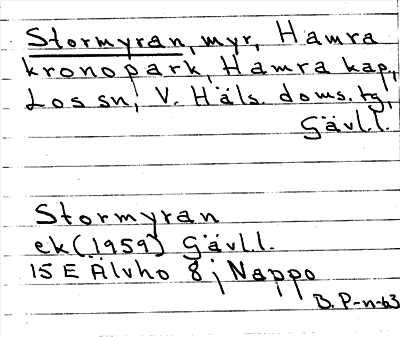 Stormyran, myr, Hamra
kronopark, Hamra kap,
Los sn, V. Häls. doms. tg,
Gävl.l.
Stormyran
ek (1959) Gävl.l.
15 E Älvho 8 j Nappo
B. P-n-63